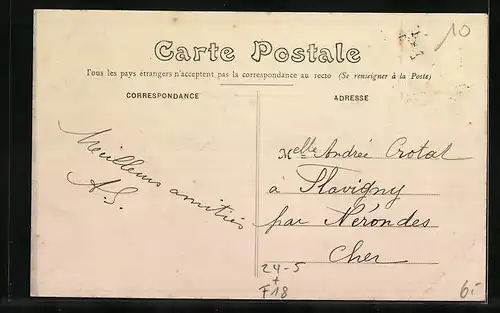 10
Carte Postale
Tous les pays étrangers n'acceptent pas la correspondance au recto (Se renseigner à la Poste)
CORRESPONDANCE
ADRESSE
Meilleures amitiés
AS.
Melle Andrée Crotat
à Flavigny
par Nérondes
Cher
24-5
+
F18
6.-